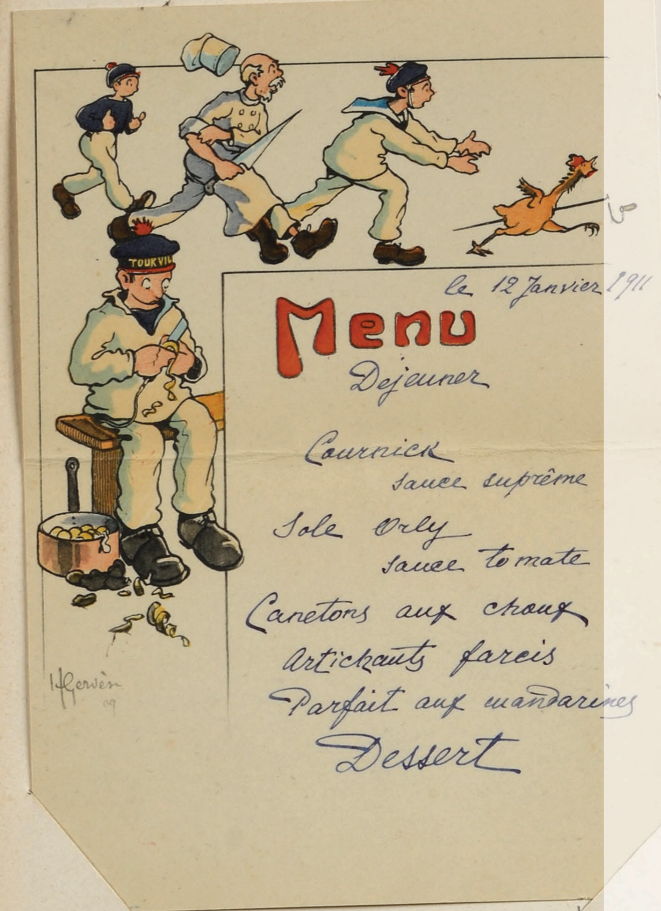 TOURVIL
le 12 Janvier 1911
Menu
Dejeuner
Cournick
sauce suprême
Sole Orly
sauce tomate
Canetons aux choux
Artichauts farcis
Parfait aux mandarines
Dessert
HGervèse
09